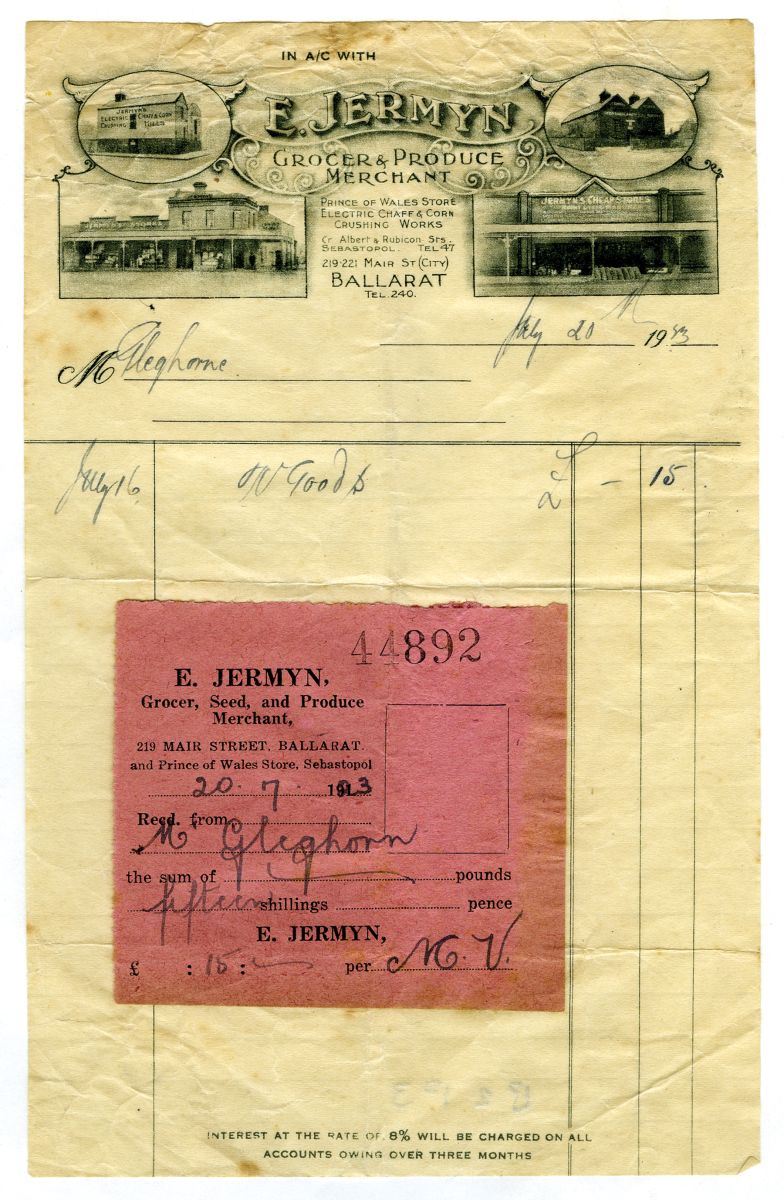 IN A/C WITH
E. JERMYN
GROCER & PRODUCE
MERCHANT
JERMYN'S
ELECTRIC CHAFF & CORN
CRUSHING MILLS
PRINCE OF WALES STORE
ELECTRIC CHAFF & CORN
CRUSHING WORKS
Cr Albert & Rubicon Sts.
SEBASTOPOL. TEL 47
219-221 MAIR ST (CITY)
BALLARAT
TEL. 240.
JERMYN'S CHEAP STORES
July 20 19
M Gleghorne
July 16 Goods £ - 15
44892
E. JERMYN,
Grocer, Seed, and Produce
Merchant,
219 MAIR STREET, BALLARAT.
and Prince of Wales Store, Sebastopol
20. 7.
Recd. from
Mr Gleghorn
the sum of pounds
fifteen shillings pence
E. JERMYN,
£ : 15 : per M. V.
INTEREST AT THE RATE OF 8% WILL BE CHARGED ON ALL
ACCOUNTS OWING OVER THREE MONTHS